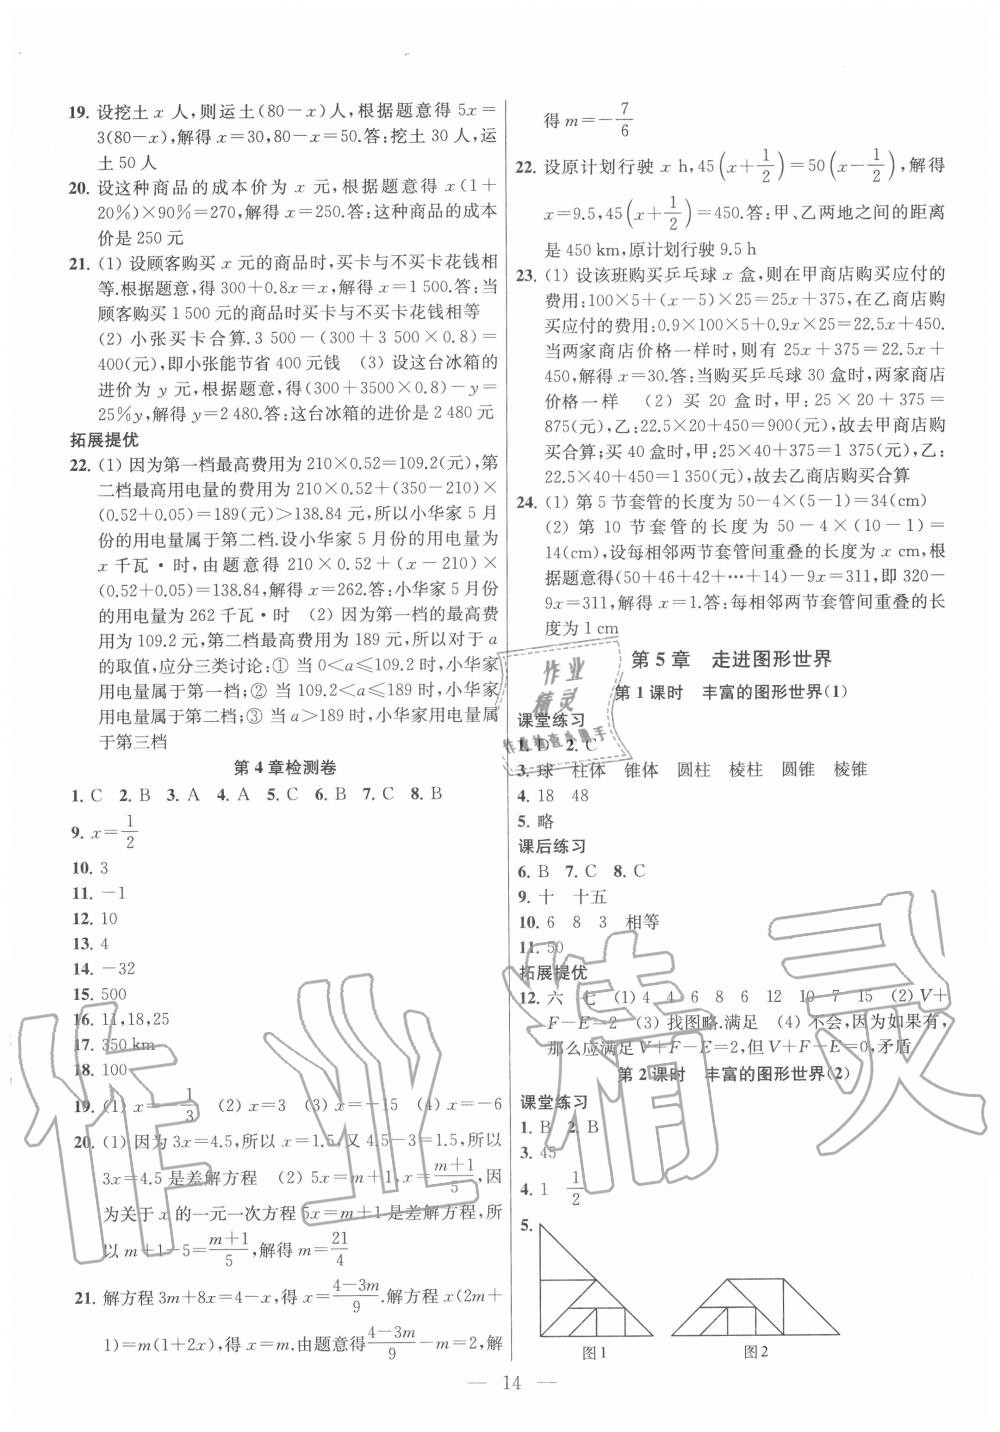 19. 设挖土 x 人,则运土(80－x)人,根据题意得 5x＝
3(80－x),解得 x＝30,80－x＝50.答:挖土 30 人,运
土 50 人
20. 设这种商品的成本价为 x 元,根据题意得 x(1＋
20%)×90%＝270,解得 x＝250.答:这种商品的成本
价是 250 元
21. (1) 设顾客购买 x 元的商品时,买卡与不买卡花钱相
等.根据题意,得 300＋0.8x＝x,解得 x＝1 500.答:当
顾客购买 1 500 元的商品时买卡与不买卡花钱相等
(2) 小张买卡合算.3 500－(300＋3 500×0.8)＝
400(元),即小张能节省 400 元钱 (3) 设这台冰箱的
进价为 y 元,根据题意,得(300＋3500×0.8)－y＝
25%y,解得 y＝2 480.答:这台冰箱的进价是 2 480 元
拓展提优
22. (1) 因为第一档最高费用为 210×0.52＝109.2(元),第
二档最高用电量的费用为 210×0.52＋(350－210)×
(0.52＋0.05)＝189(元)＞138.84 元,所以小华家 5 月
份的用电量属于第二档.设小华家 5 月份的用电量为
x 千瓦·时,由题意得 210×0.52＋(x－210)×
(0.52＋0.05)＝138.84,解得 x＝262.答:小华家 5 月份
的用电量为 262 千瓦·时 (2) 因为第一档的最高费
用为 109.2 元,第二档最高费用为 189 元,所以对于 a
的取值,应分三类讨论:① 当 0＜a≤109.2 时,小华家
用电量属于第一档;② 当 109.2＜a≤189 时,小华家用
电量属于第二档;③ 当 a＞189 时,小华家用电量属
于第三档
第 4 章检测卷
1. C 2. B 3. A 4. A 5. C 6. B 7. C 8. B
9. x＝1/2
10. 3
11. －1
12. 10
13. 4
14. －32
15. 500
16. 11,18,25
17. 350 km
18. 100
19. (1) x＝－1/3 (2) x＝3 (3) x＝－15 (4) x＝－6
20. (1) 因为 3x＝4.5,所以 x＝1.5,又 4.5－3＝1.5,所以
3x＝4.5 是差解方程 (2) 5x＝m＋1,x＝(m＋1)/5,因
为关于 x 的一元一次方程 5x＝m＋1 是差解方程,所
以 m＋1－5＝(m＋1)/5,解得 m＝21/4
21. 解方程 3m＋8x＝4－x,得 x＝(4－3m)/9.解方程 x(2m＋
1)＝m(1＋2x),得 x＝m.由题意得(4－3m)/9－m＝2,解
得 m＝－7/6
22. 设原计划行驶 x h,45(x＋1/2)＝50(x－1/2),解得
x＝9.5,45(x＋1/2)＝450.答:甲、乙两地之间的距离
是 450 km,原计划行驶 9.5 h
23. (1) 设该班购买乒乓球 x 盒,则在甲商店购买应付的
费用:100×5＋(x－5)×25＝25x＋375,在乙商店购
买应付的费用:0.9×100×5＋0.9x×25＝22.5x＋450.
当两家商店价格一样时,则有 25x＋375＝22.5x＋
450,解得 x＝30.答:当购买乒乓球 30 盒时,两家商店
价格一样 (2) 买 20 盒时,甲:25×20＋375＝
875(元),乙:22.5×20＋450＝900(元),故去甲商店购
买合算;买 40 盒时,甲:25×40＋375＝1 375(元),乙:
22.5×40＋450＝1 350(元),故去乙商店购买合算
24. (1) 第 5 节套管的长度为 50－4×(5－1)＝34(cm)
(2) 第 10 节套管的长度为 50－4×(10－1)＝
14(cm),设每相邻两节套管间重叠的长度为 x cm,根
据题意得(50＋46＋42＋…＋14)－9x＝311,即 320－
9x＝311,解得 x＝1.答:每相邻两节套管间重叠的长
度为 1 cm
第 5 章 走进图形世界
第 1 课时 丰富的图形世界(1)
课堂练习
1. D 2. C
3. 球 柱体 锥体 圆柱 棱柱 圆锥 棱锥
4. 18 48
5. 略
课后练习
6. B 7. C 8. C
9. 十 十五
10. 6 8 3 相等
11. 50
拓展提优
12. 六 七 (1) 4 4 6 8 6 12 10 7 15 (2) V＋
F－E＝2 (3) 找图略.满足 (4) 不会,因为如果有,
那么应满足 V＋F－E＝2,但 V＋F－E＝0,矛盾
第 2 课时 丰富的图形世界(2)
课堂练习
1. B 2. B
3. 45
4. 1 1/2
5.
图 1 图 2
— 14 —
作业
精灵
作业检查小助手
作业精灵